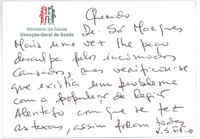 Ministério da Saúde
Direcção-Geral da Saúde
Querido
Dr. Sá Marques
Mais uma vez lhe peço
desculpa pelos incómodos
causados, mas verificou-se
que existia um problema
com a
Alentejo com que se fez
as